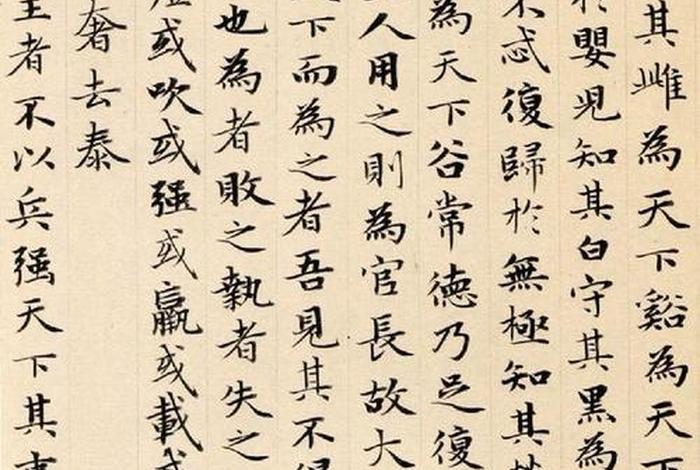 其雌為天下谿為天下
於嬰兒知其白守其黑為
不忒復歸於無極知其
為天下谷常德乃足復
人用之則為官長故大
下而為之者吾見其不得
也為者敗之執者失之
或吹或强或羸或載或
奢去泰
主者不以兵强天下其事